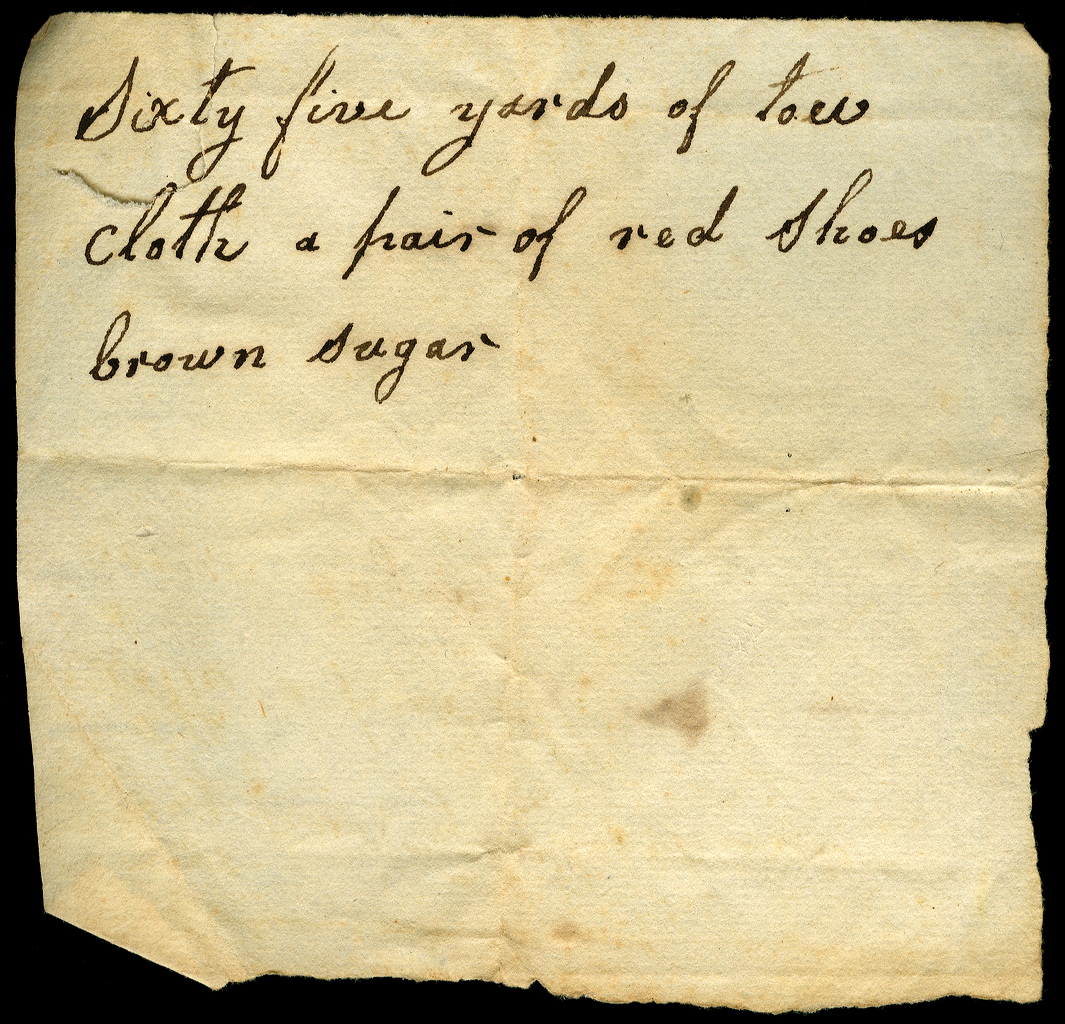 Sixty five yards of tow
cloth a pair of red shoes
brown sugar